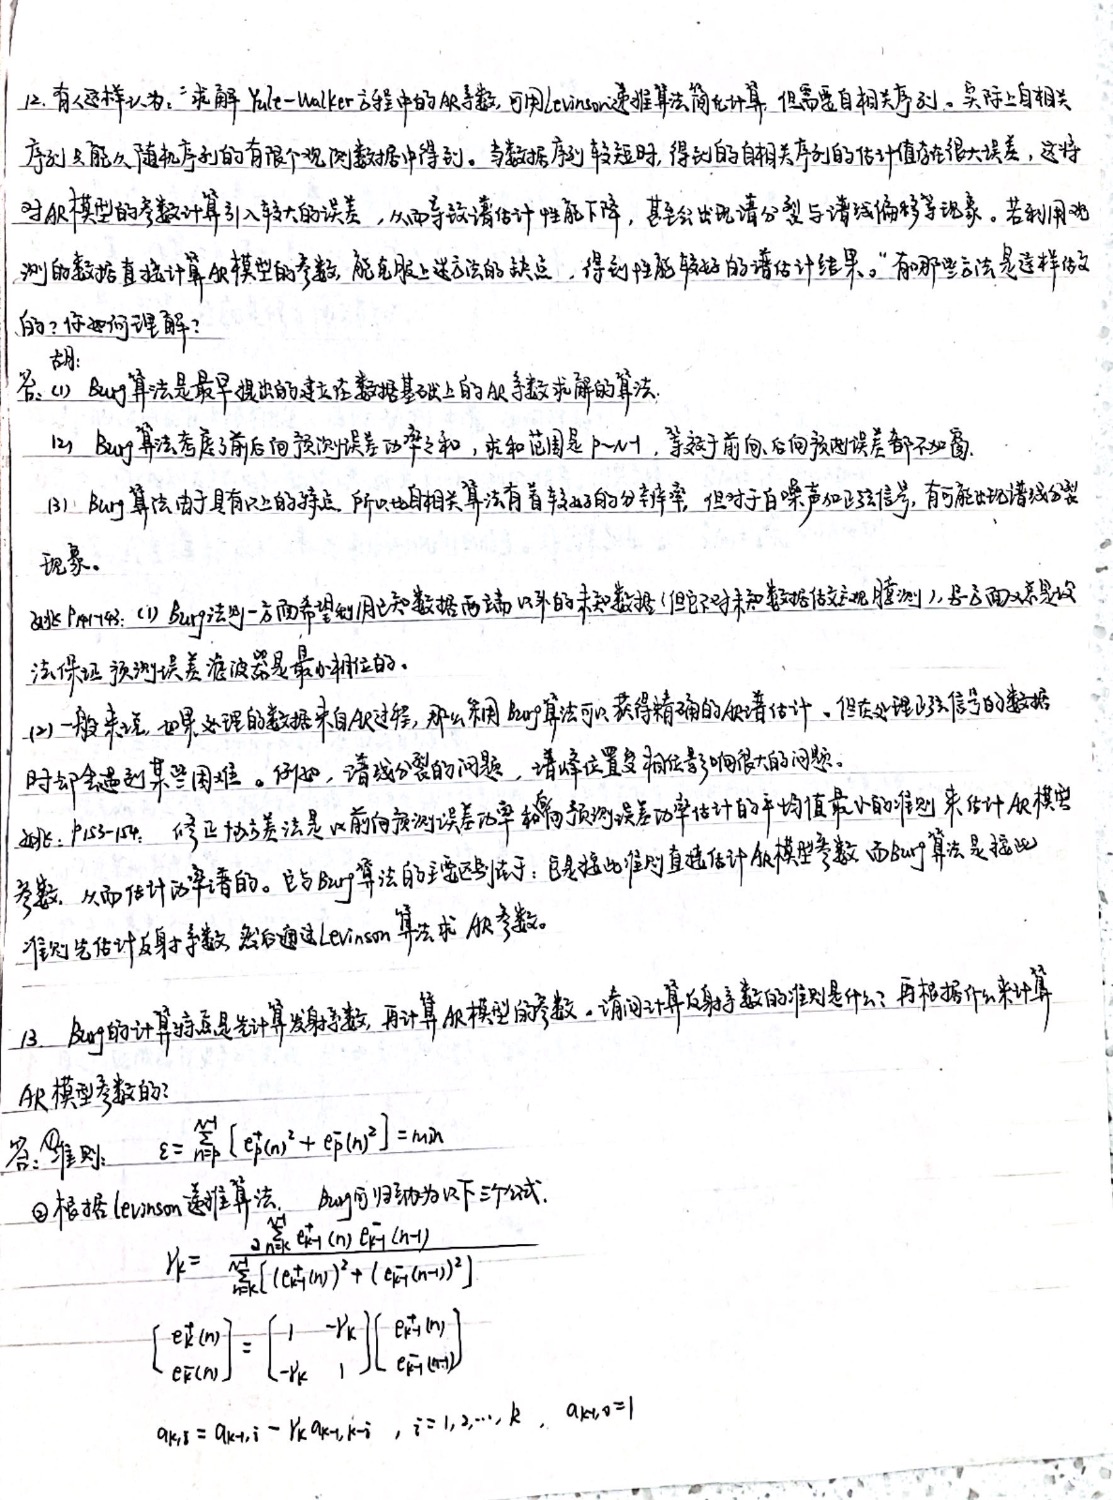 12. 有人这样认为:"求解 Yule-Walker 方程中的AR系数,可用Levinson递推算法简化计算,但需要自相关序列。实际上自相关
序列只能从随机序列的有限个观测数据中得到。当数据序列较短时,得到的自相关序列的估计值存在很大误差,这将
对AR模型的参数计算引入较大的误差,从而导致谱估计性能下降,甚至会出现谱分裂与谱线偏移等现象。若利用观
测的数据直接计算AR模型的参数,能克服上述方法的缺点,得到性能较好的谱估计结果。"有哪些方法是这样做
的?你如何理解?
胡:
答:(1) Burg算法是最早提出的建立在数据基础上的AR系数求解的算法.
(2) Burg算法考虑了前后向预测误差功率之和,求和范围是 P~N-1,等效于前向、后向预测误差都不加窗.
(3) Burg算法由于具有以上的特点,所以比自相关算法有着较好的分辨率,但对于白噪声加正弦信号,有可能出现谱线分裂
现象。
P141-143: (1) Burg法则一方面希望利用已知数据两端以外的未知数据(但它不对未知数据做主观臆测),另一方面又总是设
法保证预测误差滤波器是最小相位的。
(2)一般来说,如果处理的数据来自AR过程,那么采用Burg算法可以获得精确的AR谱估计。但在处理正弦信号的数据
时却会遇到某些困难。例如,谱线分裂的问题,谱峰位置受相位影响很大的问题。
P153-154: 修正协方差法是以前向预测误差功率和后向预测误差功率估计的平均值最小的准则来估计AR模型
参数,从而估计功率谱的。它与Burg算法的主要区别在于:它是按此准则直接估计AR模型参数,而Burg算法是按此
准则先估计反射系数,然后通过Levinson算法求AR参数。
13. Burg的计算特点是先计算发射系数,再计算AR模型的参数。请问计算反射系数的准则是什么?再根据什么来计算
AR模型参数的?
答:①准则: ε=∑_{n=p}^{N-1}[e_p^+(n)^2+e_p^-(n)^2]=min
②根据levinson递推算法, Burg可归纳为以下三个公式.
γ_k = 2∑_{n=k}^{N-1} e_{k-1}^+(n) e_{k-1}^-(n-1) / ∑_{n=k}^{N-1}[(e_{k-1}^+(n))^2+(e_{k-1}^-(n-1))^2]
[e_k^+(n); e_k^-(n)] = [1 -γ_k; -γ_k 1][e_{k-1}^+(n); e_{k-1}^-(n-1)]
a_{k,i} = a_{k-1,i} - γ_k a_{k-1,k-i} , i=1,2,…,k , a_{k-1,0}=1